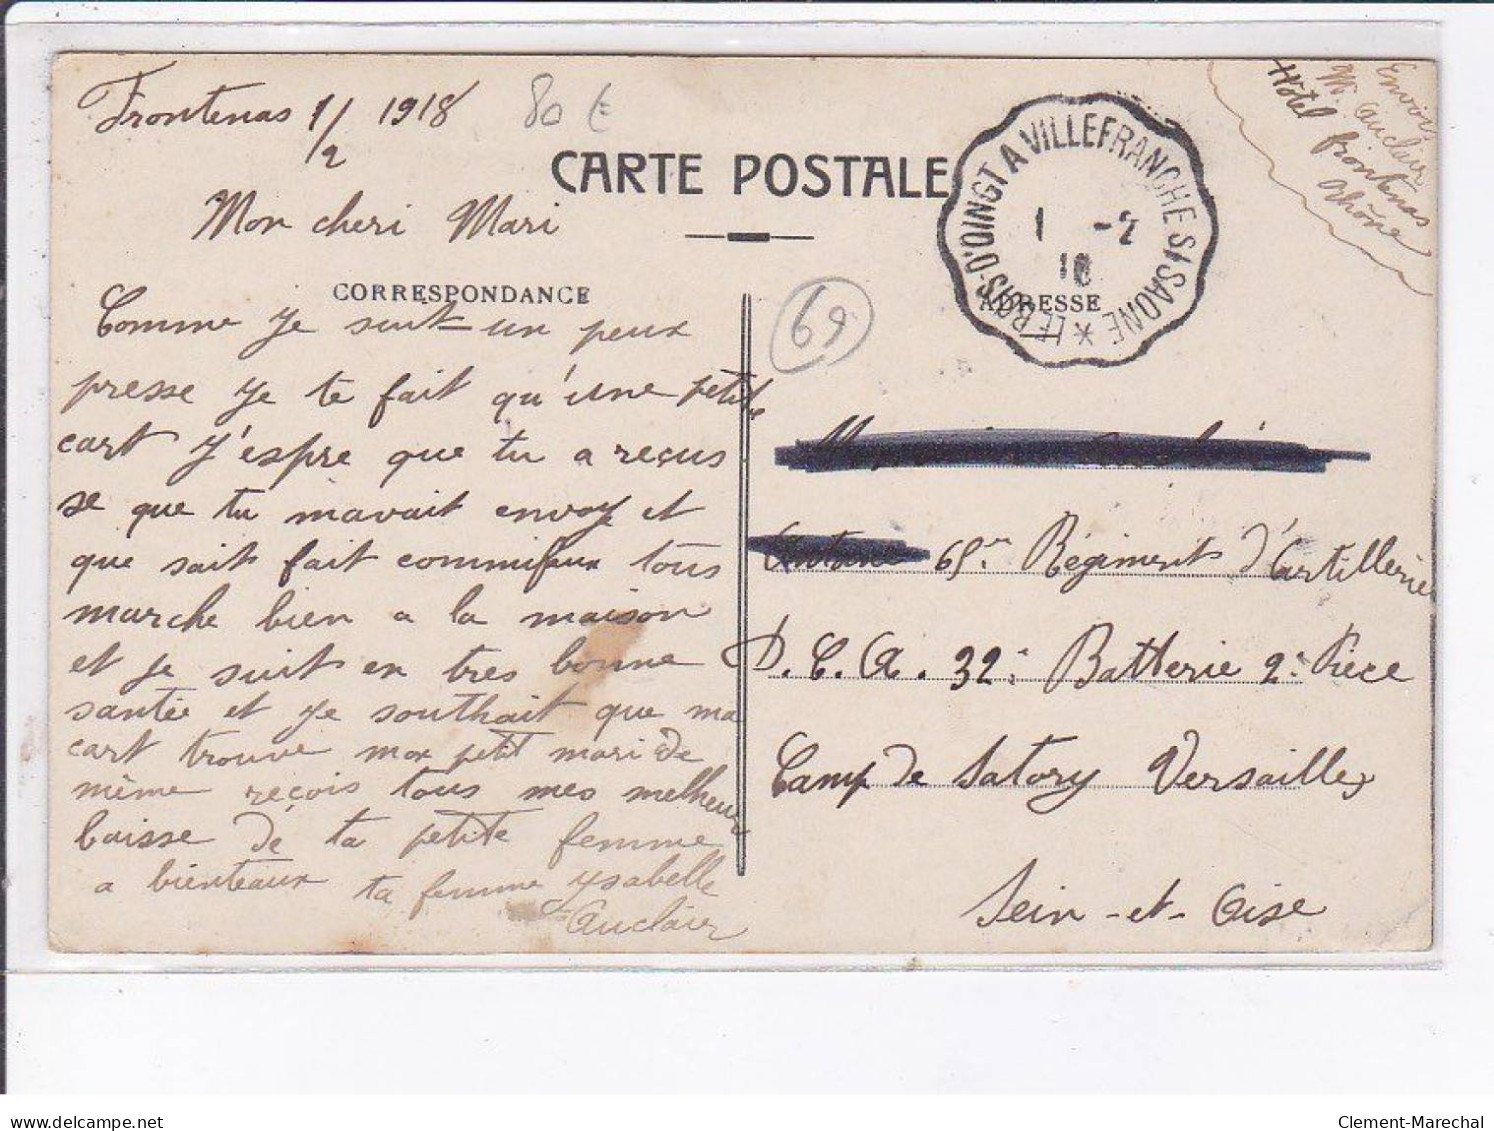 Frontenas 1/2 1918
80 €
Envoi
M. Auclair
Hôtel Frontenas
Rhône
CARTE POSTALE
LE BOIS-D'OINGT A VILLEFRANCHE S/ SAONE *
1 -2
18
Mon cheri Mari
CORRESPONDANCE
ADRESSE
69
Comme Je suit un peux
presse Je te fait qu'une petite
cart J'espre que tu a reçus
se que tu mavait envoye et
que sait fait commifaux tous
marche bien a la maison
et je suit en tres bonne
santée et Je southait que ma
cart trouve mon petit mari de
même reçois tous mes melheur
baisse dé ta petite femme
a bienteaux ta femme Ysabelle
Auclair
Antoine 65em Régiment d'Artillerie
D.C.A. 32e Batterie 2e Pièce
Camp de Satory Versailles
Sein-et-Oise
delcampe.net
Clement-Marechal